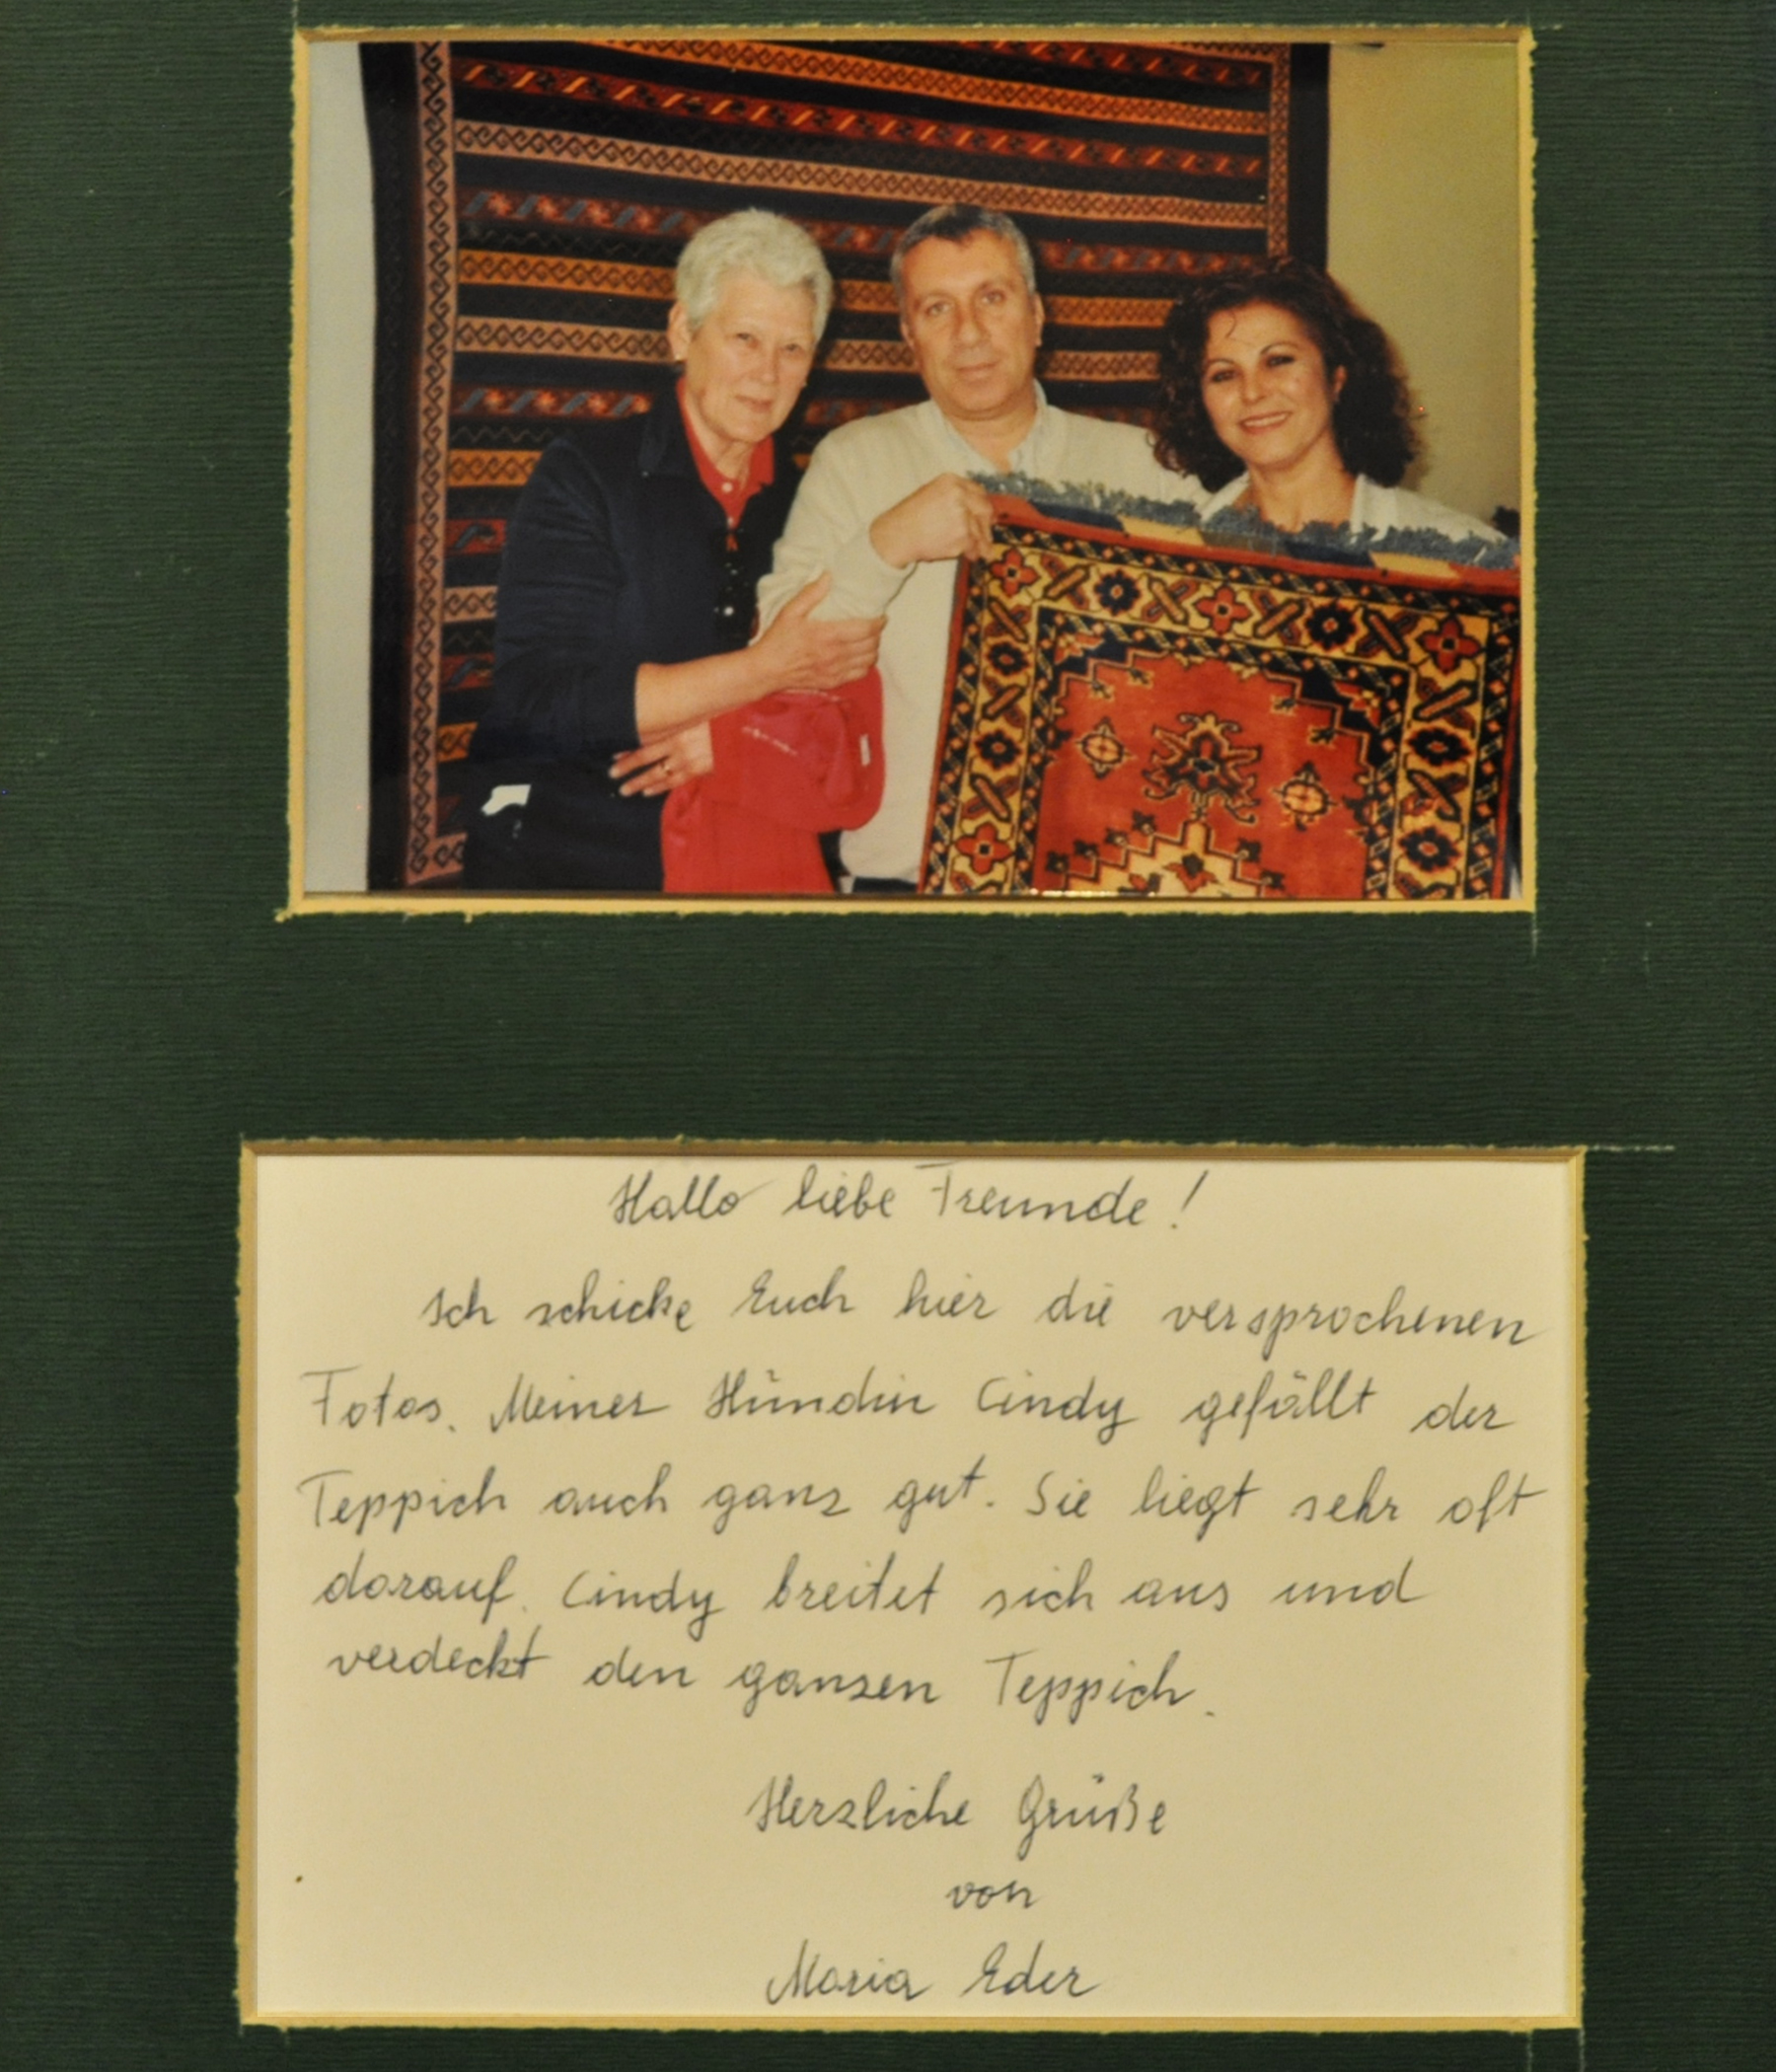 Hallo liebe Freunde!
Ich schicke Euch hier die versprochenen
Fotos. Meiner Hündin Cindy gefällt der
Teppich auch ganz gut. Sie liegt sehr oft
darauf. Cindy breitet sich aus und
verdeckt den ganzen Teppich.
Herzliche Grüße
von
Maria Eder